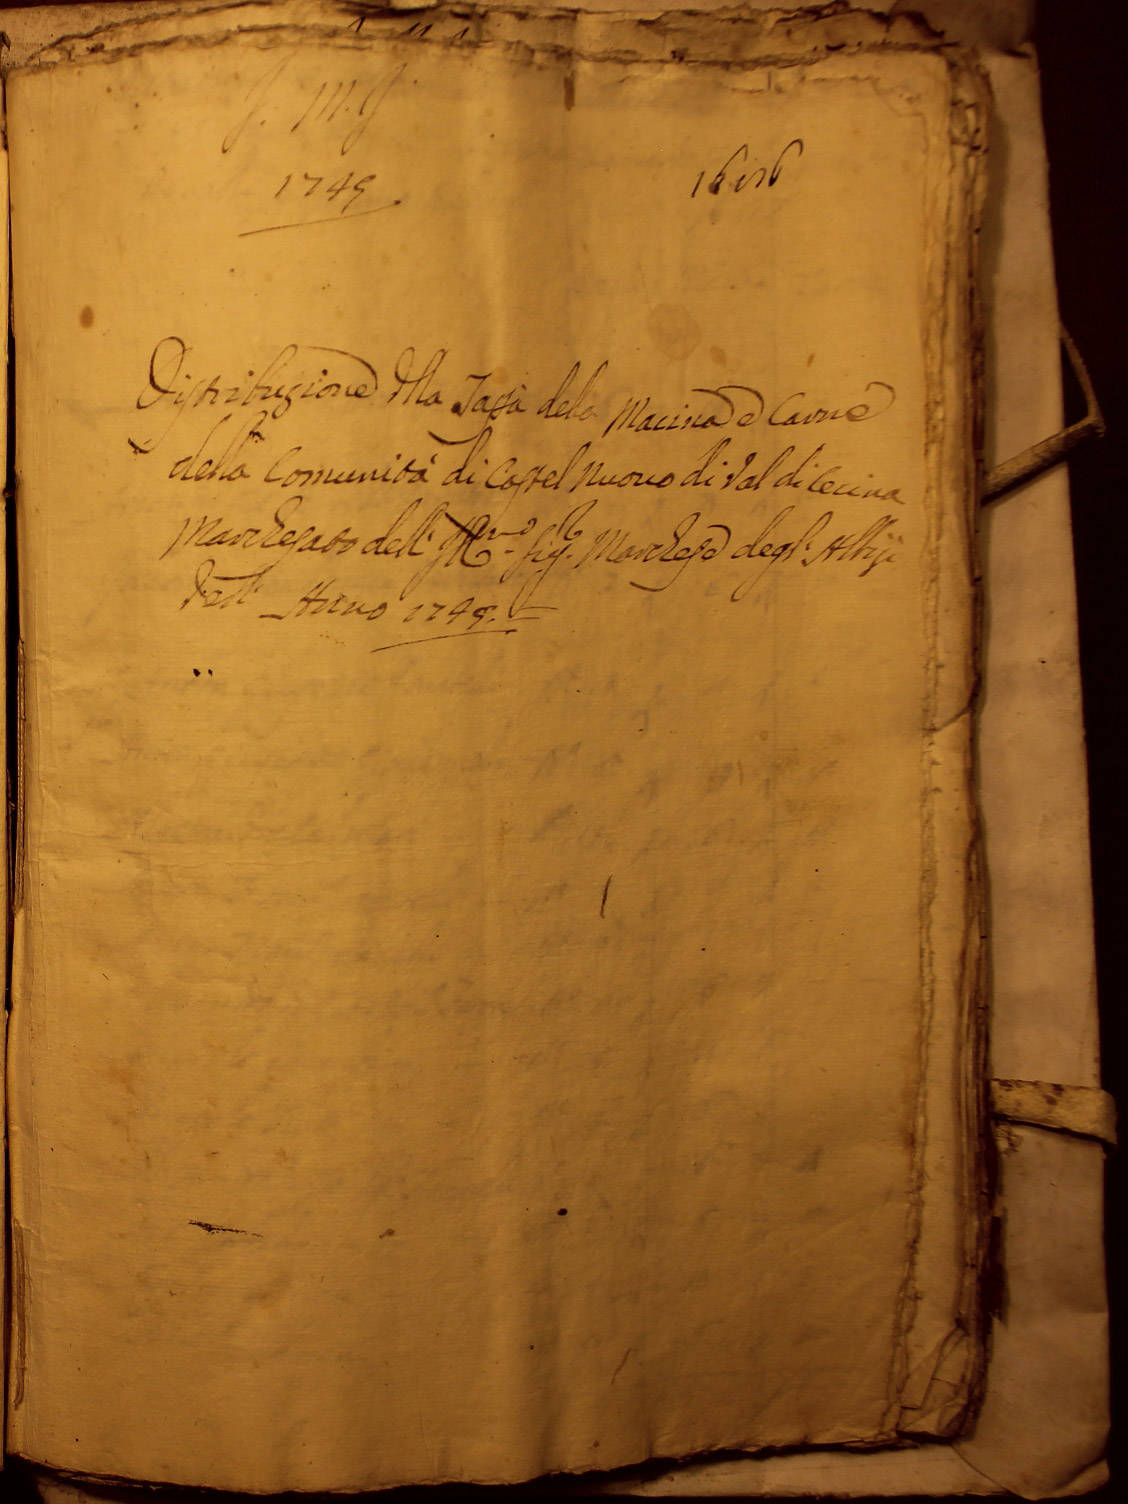 J. M. J.
1749
Distribuzione della Tassa dela Macina e Carne
della Comunità di Castel nuovo di Val di Cecina
Marchesato dell' Sig. Marchese degl' Albizi
Anno 1749.